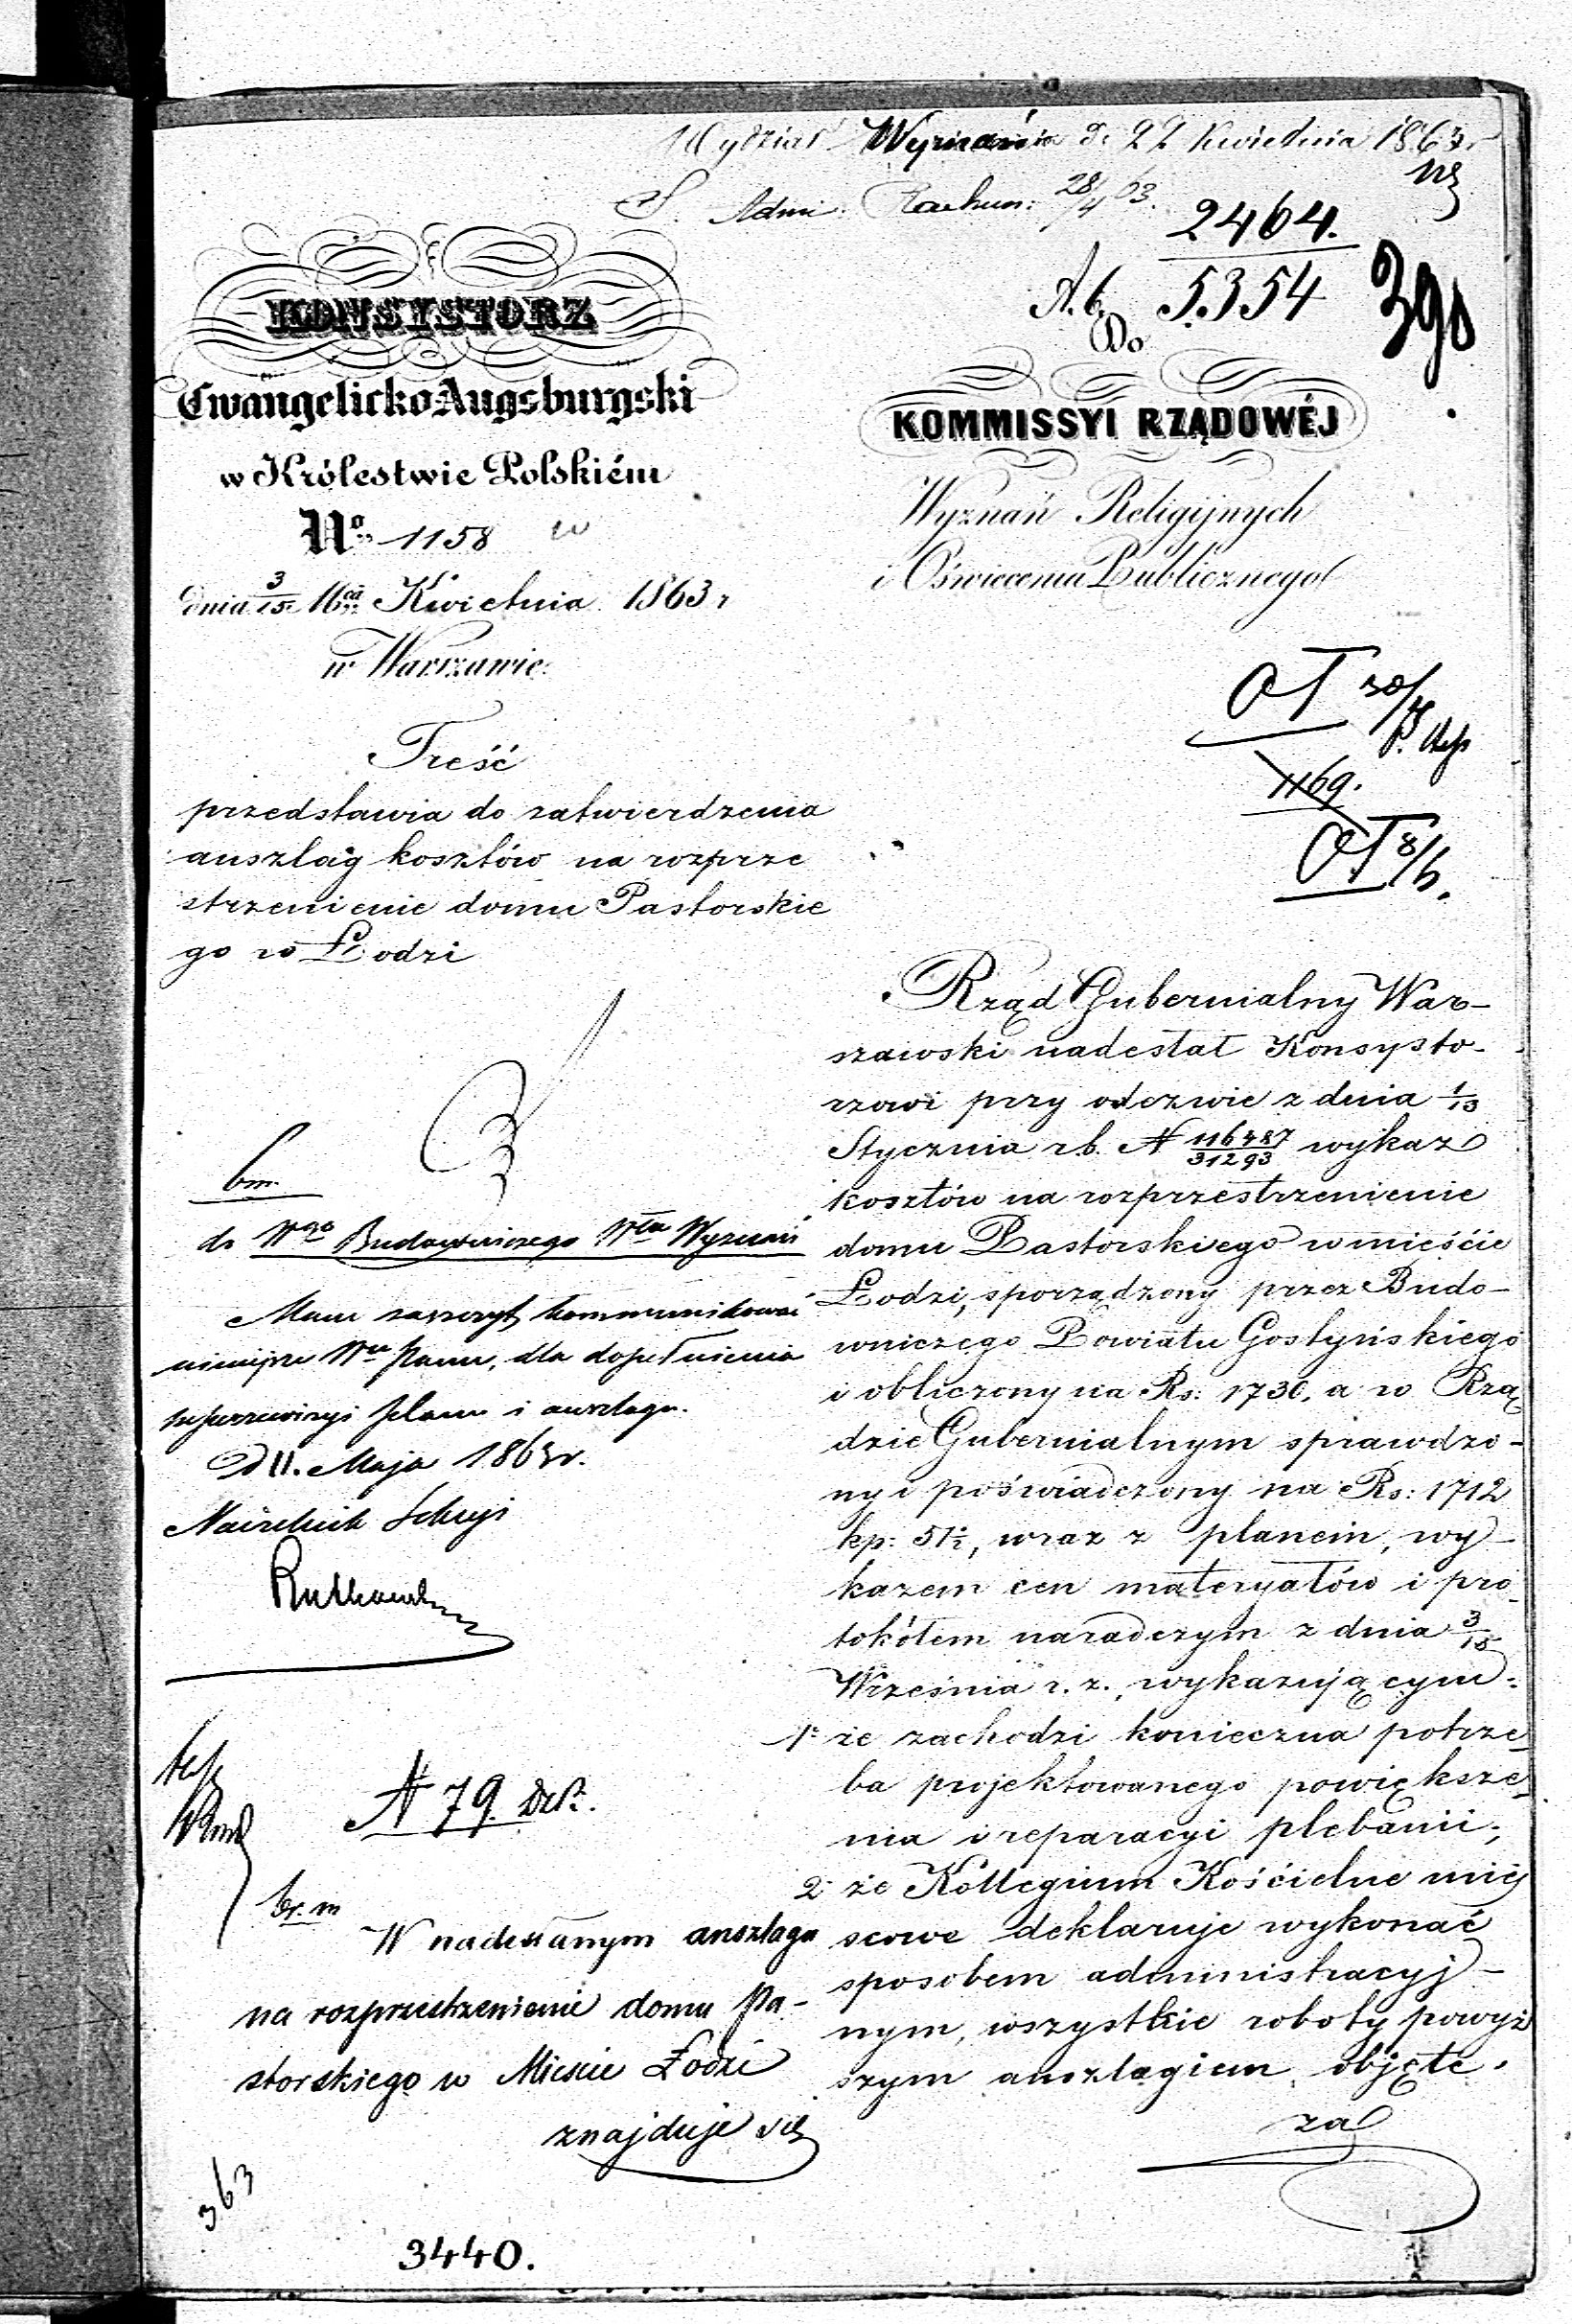 Wydział Wyznań d. 22 Kwietnia 1863 r
Adm: Rachun: 28/4 63.
2464.
A. b. 5354
390
KONSYSTORZ
Ewangelicko Augsburgski
w Królestwie Polskiém
No 1158
dnia 3/15 16go Kwietnia 1863 r
w Warszawie.
Treść
przedstawia do zatwierdzenia
anszlag kosztów na rozprze
strzenienie domu Pastorskie
go w Łodzi
Do
KOMMISSYI RZĄDOWÉJ
Wyznań Religijnych
i Oświecenia Publicznego
30/4
1169.
8/5.
Rząd Gubernialny War-
szawski nadesłał Konsysto-
rzowi przy odezwie z dnia 1/13
Stycznia r.b. N 116487/31293 wykaz
kosztów na rozprzestrzenienie
domu Pastorskiego w mieście
Łodzi, sporządzony przez Budo-
wniczego Powiatu Gostyńskiego
i obliczony na Rs: 1730, a w Rzą
dzie Gubernialnym sprawdzo-
ny i poświadczony na Rs: 1712
kp: 51½, wraz z planem, wy-
kazem cen materyałów i pro-
tokółem naradczym z dnia 3/15
Września r. z., wykazującym:
1o że zachodzi konieczna potrze-
ba projektowanego powiększe-
nia i reparacyi plebanii;
2o że Kollegium Kościelne miej
scowe deklaruje wykonać
sposobem administracyj-
nym, wszystkie roboty powyż
szym anszlagiem objęte.
za
bm.
do Wgo Budowniczego Wła Wyznań
Mam zaszczyt kommunikować
niniejsze Wu Panu, dla dopełnienia
superrewizyi planu i anszlagu.
D 11. Maja 1863 r.
Naczelnik Sekcyi
N 79.
br. m
W nadesłanym anszlagu
na rozprzestrzenienie domu Pa-
storskiego w Mieście Łodzi
znajduje się
363
3440.